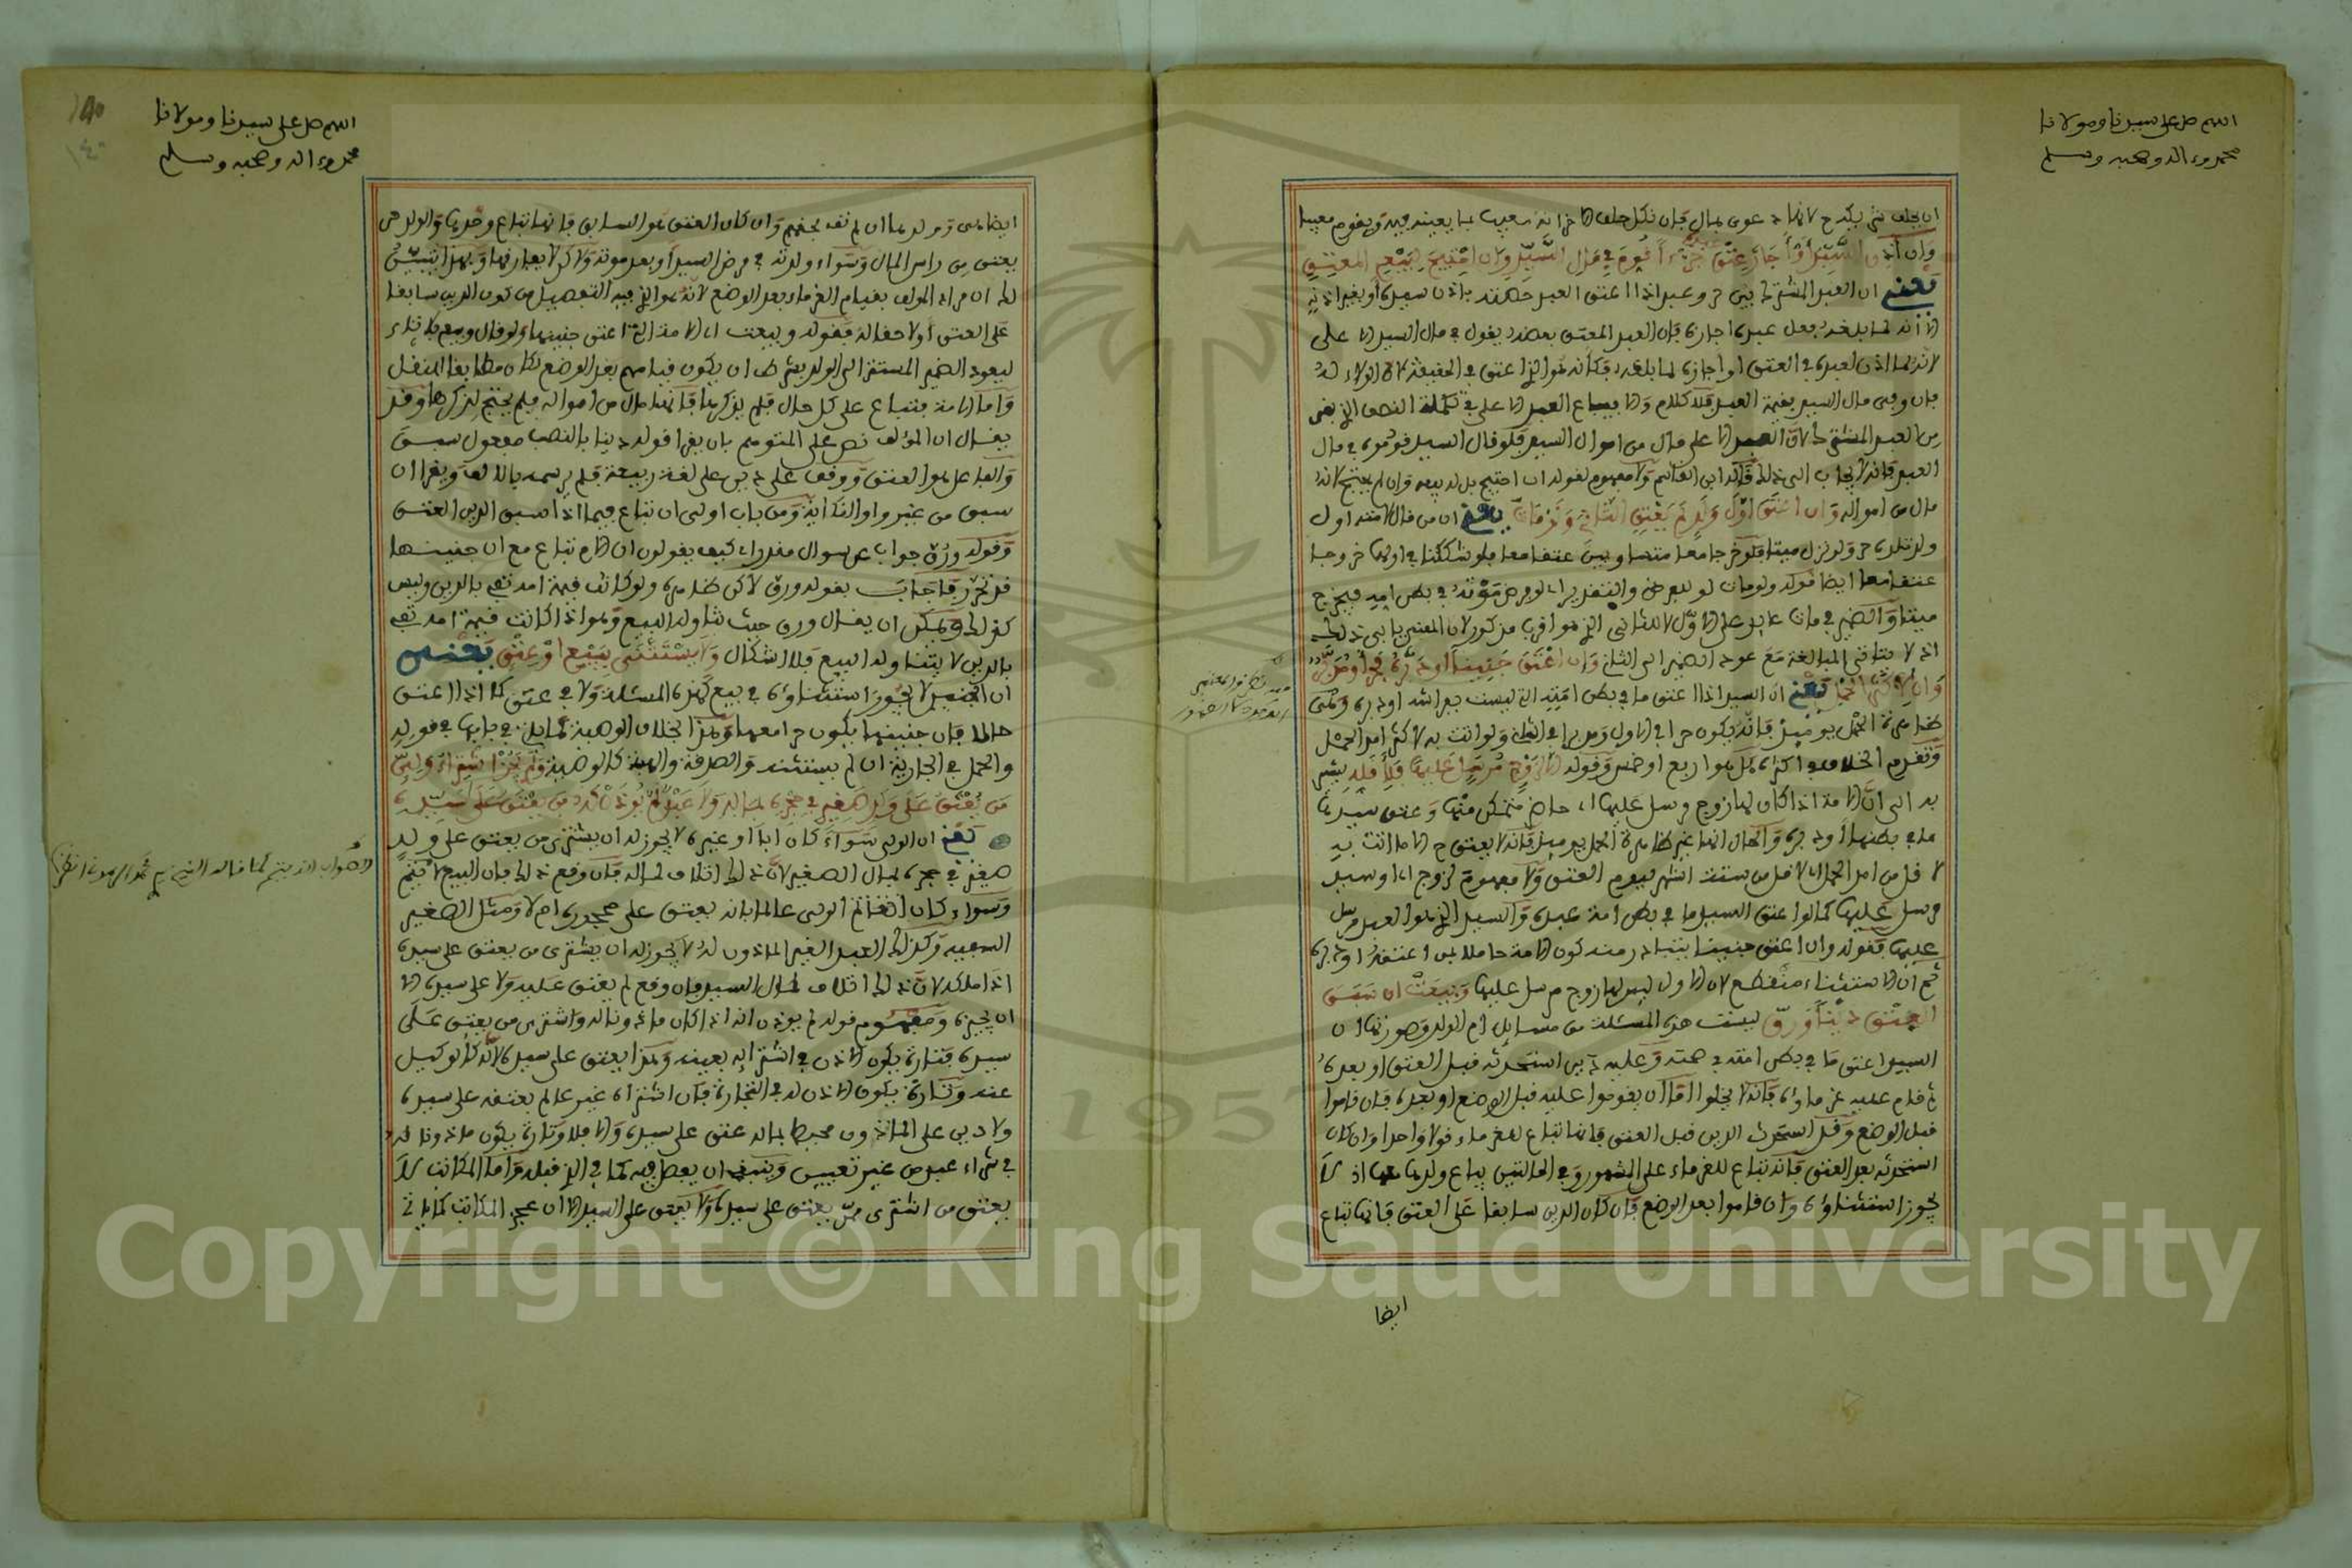 اللهم صل على سيدنا ومولانا
محمد وءاله وصحبه وسلم
ان يحلف شريكه لانها دعوى بمال فإن نكل حلف الاخر انه معيب بما يعينه فيه ويقوم معيبا
وإن أذن السيد أو أجاز عتق عبده جزءا قوم في مال السيد وإن احتيج لبيع المعتق
يعني ان العبد المشترك بين حر وعبد اذا اعتق العبد حصته باذن سيده أو بغير اذنه
الا أنه لما بلغه فعل عبده اجازه فإن العبد المعتق بعضه يقوم في مال السيد الاعلى
لأنه لما اذن لعبده في العتق او اجازه لما بلغه فكأنه هو الذي اعتق في الحقيقة لأن الولاء له
فإن وفى مال السيد بقيمة العبد فلا كلام والا يباع العبد الاعلى في تكملة النصف الذي بقي
من العبد المشترك لأن العبد الاعلى مال من اموال السيد فلو قال السيد قوموه في مال
العبد فإنه لا يجاب الى ذلك قاله ابن القاسم ولا مفهوم لقوله ان احتيج بل له بيعه وإن لم يحتج لأنه
مال من امواله وإن أعتق أول ولد لم يعتق الثاني ولو مات يعني ان من قال لامته اول
ولد تلديه حر ولو نزل ميتا فلو خرجا معا منها وبين عتقا معا ولو شككنا في اولهما خروجا
عتقا معا ايضا فقوله ولو مات لو للعرض والتقدير اي لو فرض موته في بطن امه فيخرج
ميتا والضمير في مات عايد على الاول لا للثاني الذي هو اقرب مذكور لان المعنى يابى ذلك
اذ لا يتاتى المبالغة مع عود الضمير الى الثاني وإن أعتق جنينا أو دبره فحر أو مدبر
وإن لأكثر الحمل يعني ان السيد اذا اعتق ما في بطن امته التي ليست بفراشه او دبره وهي
ظاهرة الحمل يومئذ فإنه يكون حرا في الاول ومدبرا في الثاني ولو اتت به لاكثر امد الحمل
وتقدم الخلاف في اكثره هل هو اربع او خمس وقوله إلا لزوج مرسل عليها فلأقله يشير
به الى ان الامة اذا كان لها زوج مرسل عليها اي حاضر متمكن منها وعتق سيدها
ما في بطنها أو دبره والحال انها غير ظاهرة الحمل يومئذ فإنه لا يعتق ح الا ما اتت به
لاقل من امد الحمل اي لاقل من ستة اشهر ليوم العتق ولا مفهوم لزوج اي او سيد
مرسل عليها كما لو اعتق السيد ما في بطن امة عبده والسيد الذي هو العبد مرسل
عليها فقوله وان اعتق جنينا يتبادر منه كون الامة حاملا بمن اعتقه او دبره
ثم ان الاستثناء منقطع لان الاول ليس لها زوج مرسل عليها وبيعت إن سبق
العتق دين ورق ليست هذه المسئلة من مسايل ام الولد وصورتها ان
السيد اعتق ما في بطن امته في صحته وعليه دين استحدثه قبل العتق او بعده
ثم قام عليه غرماؤه فإنه لا يخلوا اما ان يقوموا عليه قبل الوضع او بعده فإن قاموا
قبل الوضع وقد استحدث الدين قبل العتق فإنها تباع للغرماء قولا واحدا وإن كان
استحدثه بعد العتق فإنه تباع للغرماء على المشهور وفي الحالتين يباع ولدها معها اذ لا
يجوز استثناؤه وإن قاموا بعد الوضع فإن كان الدين سابقا على العتق فإنها تباع
ايضا
اللهم صل على سيدنا ومولانا
محمد وءاله وصحبه وسلم
١٤٠
ايضا هي وولدها ان لم تف بحقهم وإن كان العتق هو السابق فإنها تباع وحدها والولد حر
يعتق من راس المال وسواء ولدته في مرض السيد أو بعد موته ولاكن لا يفارقها وبهذا تبين
لك ان مراد المولف بقيام الغرماء بعد الوضع لأنه هو الذي فيه التفصيل من كون الدين سابقا
على العتق أو لاحقا له فقوله وبيعت اي الامة التي اعتق جنينها ولو قال وبيع بلا تاء
ليعود الضمير المستتر الى الولد بشرط ان يكون قيامهم بعد الوضع لكان مطابقا للنقل
وأما الامة فتباع على كل حال فلم يذكرها فإنها مال من امواله فلم يحتج لذكرها وقد
يقال ان المؤلف نص على المتوهم بان يقرا قوله دينا بالنصب مفعول سبق
والفاعل هو العتق ووقف على دين على لغة ربيعة فلم يرسمه بالالف ويقرا ان
سبق من غير واو النكاية ومن باب اولى ان تباع فيما اذا سبق الدين العتق
وقوله ورق جواب عن سوال مقدر اي كيف يقولون ان الام تباع مع ان جنينها
قد تحرر فاجاب بقوله ورق لاكن ظاهره ولو كانت قيمة امه تفي بالدين وليس
كذلك ويمكن ان يقال ورق حيث تناوله البيع وهو اذا كانت قيمة امه تفي
بالدين لا يتناوله البيع فلا اشكال ولا يستثنى ببيع أو عتق يعني
ان الجنين لا يجوز استثناؤه في بيع كهذه المسئلة ولا في عتق كما اذا اعتق
حاملا فإن جنينها يكون حرا معها وهذا بخلاف الوصية لما ياتي في بابها في قوله
والحمل في الجارية ان لم يستثنه والصدقة والهبة كالوصية ولم يجز اشتراء ولي
من يعتق على ولد صغير في حجره بماله ولا عبد لم يؤذن له من يعتق على سيده
يعني ان الولي سواء كان ابا أو غيره لا يجوز له ان يشتري من يعتق على ولد
صغير في حجره بمال الصغير لأن ذلك اتلاف لماله فإن وقع ذلك فإن البيع لا يتم
وسواء كان الولي عالما بانه يعتق على محجوره ام لا ومثل الصغير
السفيه وكذلك العبد الغير الماذون له لا يجوز له ان يشتري من يعتق على سيده
اذا ملكه لأن ذلك اتلاف لمال السيد فإن وقع لم يعتق عليه ولا على سيده الا
ان يجيزه ومفهوم قوله لم يوذن انه اذا كان ماذونا له واشترى من يعتق على
سيده فتارة يكون الاذن في اشترائه بعينه وهذا يعتق على سيده لأنه كالوكيل
عنه وتارة يكون الاذن له في التجارة فإن اشتراه غير عالم بعتقه على سيده
ولا دين على الماذون محيط بماله عتق على سيده والا فلا وتارة يكون ماذونا له
في شراء عبد من غير تعيين وينبغي ان يفصل فيه كما في الذي قبله وأما المكاتب لا
يعتق من اشترى ممن يعتق على سيده ولا يعتق على السيد الا ان عجز المكاتب كما ياتي